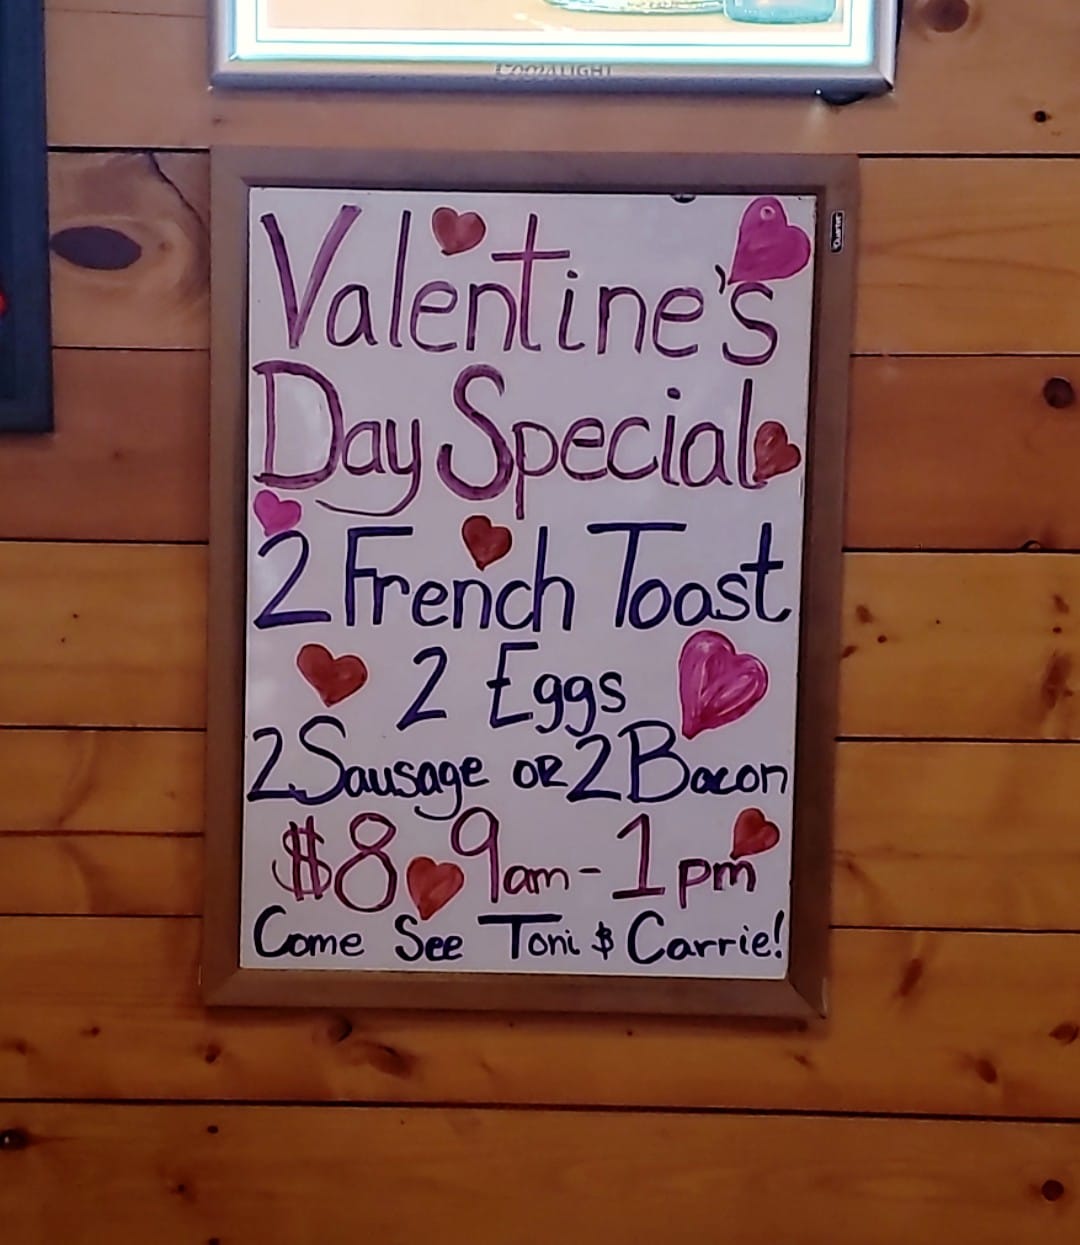 Coors LIGHT
Quartet
Valentine's
Day Special
2 French Toast
2 Eggs
2 Sausage OR 2 Bacon
$8 9am - 1pm
Come See Toni & Carrie!